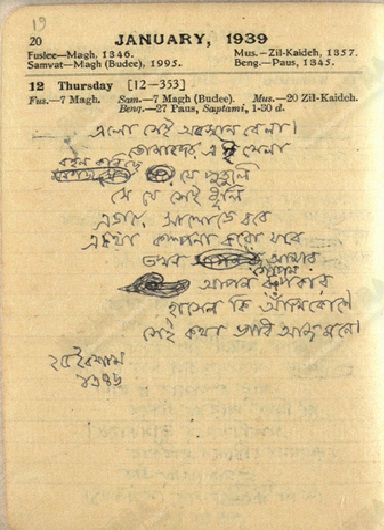 19
20 JANUARY, 1939
Fuslee—Magh, 1346. Mus.—Zil-Kaideh, 1357.
Samvat—Magh (Budee), 1995. Beng.—Paus, 1345.
12 Thursday [12—353]
Fus.—7 Magh. Sam.—7 Magh (Budee). Mus.—20 Zil-Kaideh.
Beng.—27 Paus, Saptami, 1-30 d.
এলো সেই অবসান বেলা।
তোমাদের এই খেলা
যে পুতুলি
সে যে সেই
এবার
একথা কল্পনা করো যবে
তখন আমার
আপন রূপকার
হাসেন কি আঁখিকোণে
সেই কথা ভাবি আজ মনে।
২৫ বৈশাখ
১৩৪৬